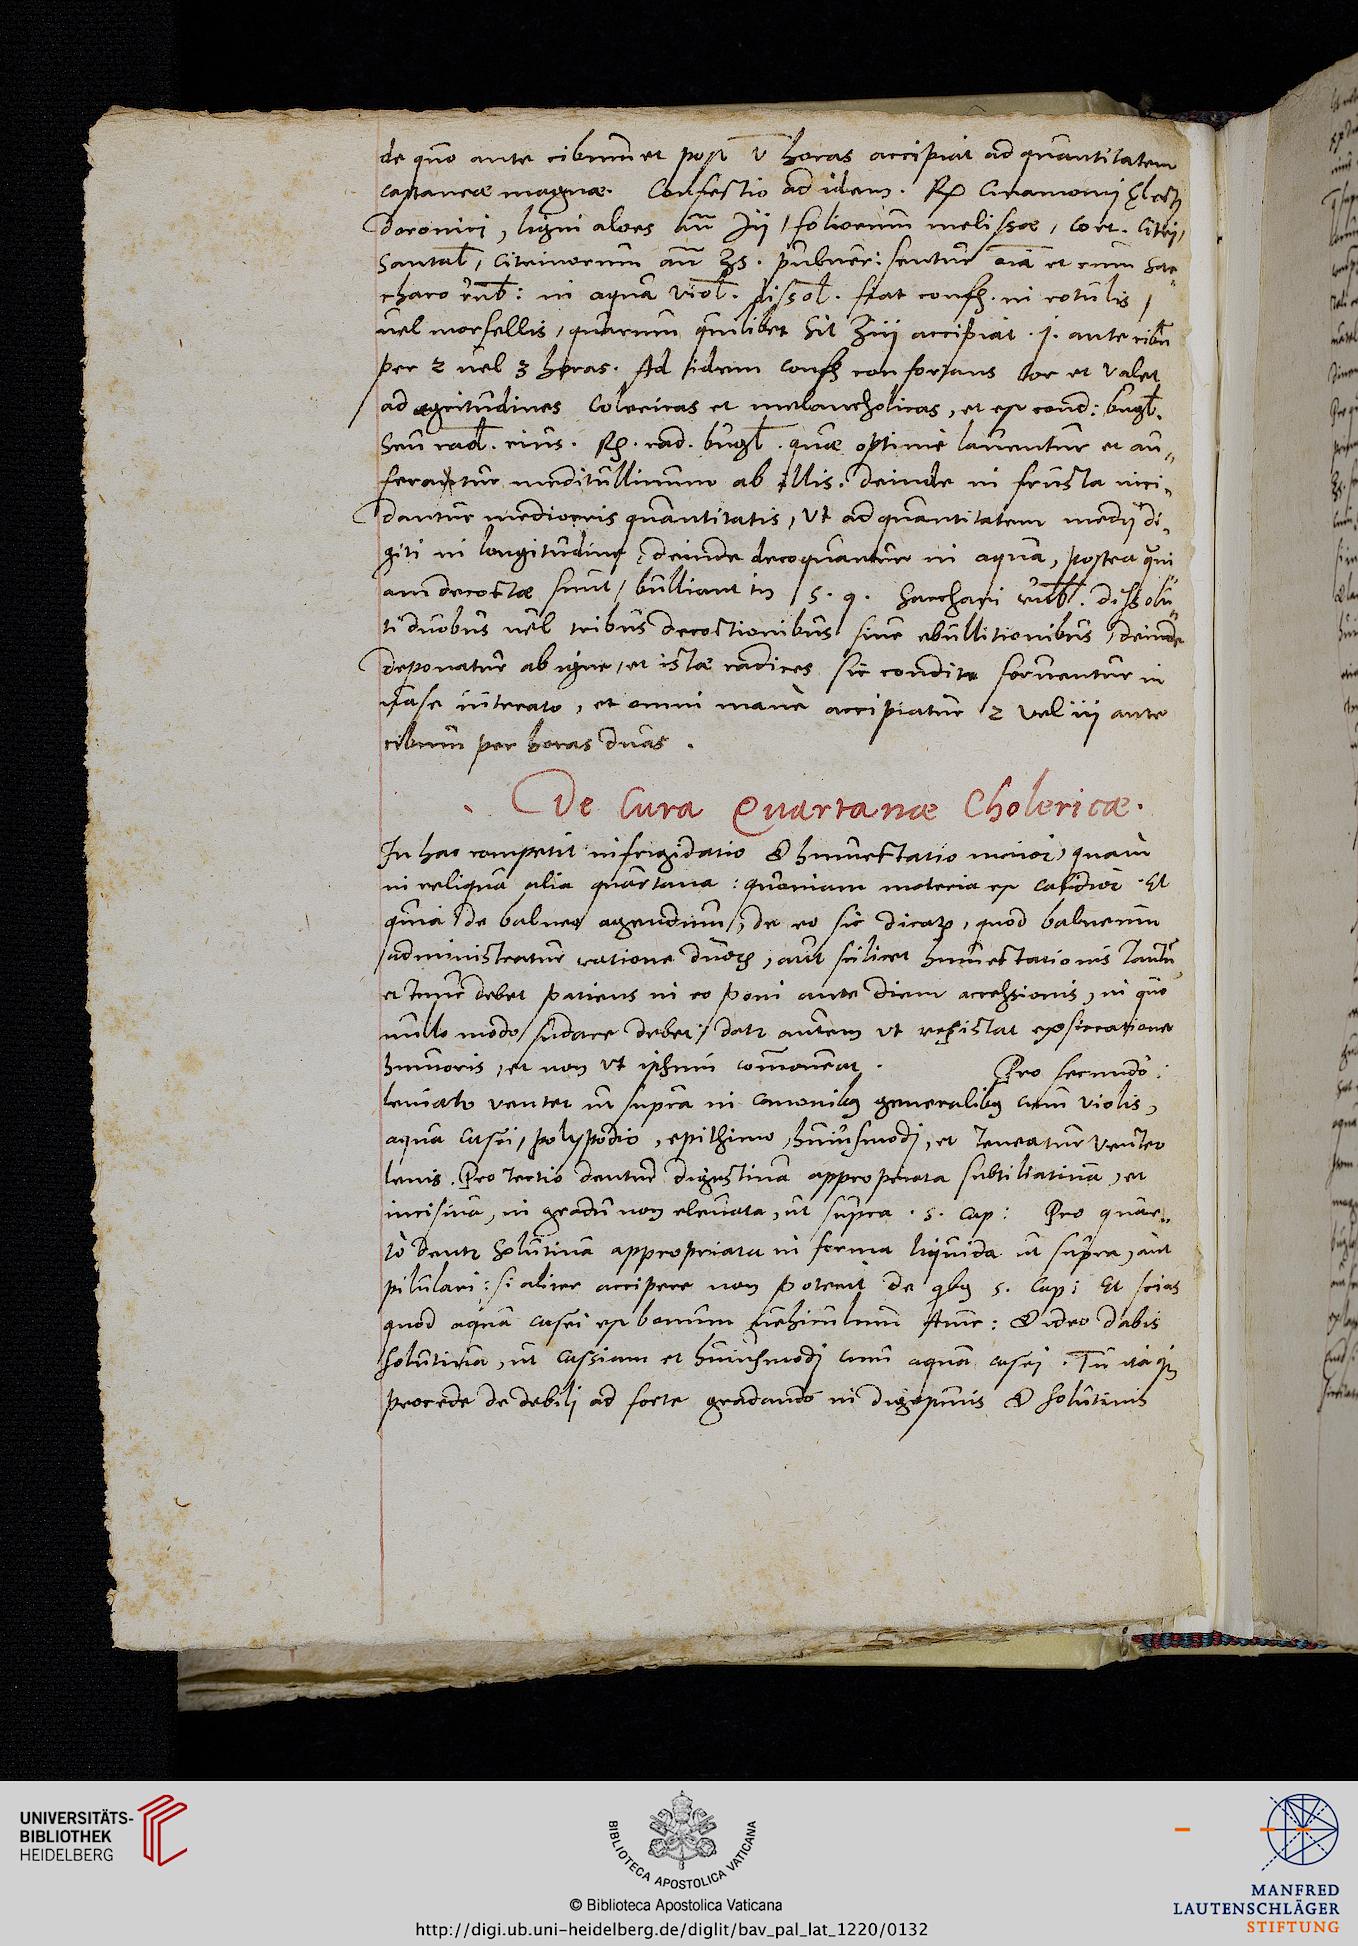 de quo ante cibum et post v horas accipiat ad quantitatem
castaneæ magnæ. Confectio ad idem. Rp Cinamomi Elect,
doronici, ligni aloes an ʒij, foliorum melissæ, Cort. Citri,
Santal, Citrinorum an ʒs. pulver: sentur oia et cum Sac
charo rub: in aqua viol. dissol. fiat conf. in rotulis,
uel morsellis, quarum quilibet sit ʒiij accipiat .j. ante cibū
per 2 uel 3 horas. Ad idem conf confortans cor et valet
ad ægritudines Colericas et melancholicas, et est cond: bugl.
Seu rad. eius. Rp. rad. bugl. quæ optime lauentur et au„
ferantur meditullinum ab illis. deinde in frusta inci„
dantur mediocris quantitatis, vt ad quantitatem medij di„
giti in longitudine, deinde decoquantur in aqua, postea qui
am decoctæ sunt, bulliant in s. q. Sacchari rub. dissolu„
ti duobus uel tribus decoctionibus siue ebullitionibus, deinde
deponatur ab igne, et istæ radices sic condite seruentur in
vase uitreato, et omni manè accipiatur 2 vel iij ante
cibum per horas duas.
De Cura Quartanæ Cholericæ.
In hac competit infrigidatio & humectatio maior, quam
in reliqua alia quartana: quoniam materia est calidior. Et
quia de balneo agendum, de eo sic dicatr, quod balneum
administratur ratione duorum, aut scilicet humectationis tantū
et tunc debet patiens in eo poni ante diem accessionis, in quo
nullo modo sudare debet, datr autem vt resistat exsiccatione
humoris, et non vt ipsum commoueat. Pro secundo:
leniatur venter ut supra in canonibus generalibus cum violis,
aqua casei, polypodio, epithimo, huiusmodj, et teneatur venter
lenis. Pro tertio dentur digestiua appropriata subtiliatiua, et
incisiua, in gradu non eleuata, ut supra. s. cap: Pro quar„
to dentr solutiua appropriata in forma liquida ut supra, aut
pilulari: si aliter accipere non poterit de qbus s. cap: Et scias
quod aqua casei est bonum uehiculum
solutiua, ut cassiam et huiusmodj cum aqua casej. Tu itaq;
procede de debili ad forte gradando in digestiuis & solutiuis
UNIVERSITÄTS-
BIBLIOTHEK
HEIDELBERG
BIBLIOTECA APOSTOLICA VATICANA
© Biblioteca Apostolica Vaticana
http://digi.ub.uni-heidelberg.de/diglit/bav_pal_lat_1220/0132
MANFRED
LAUTENSCHLÄGER
STIFTUNG